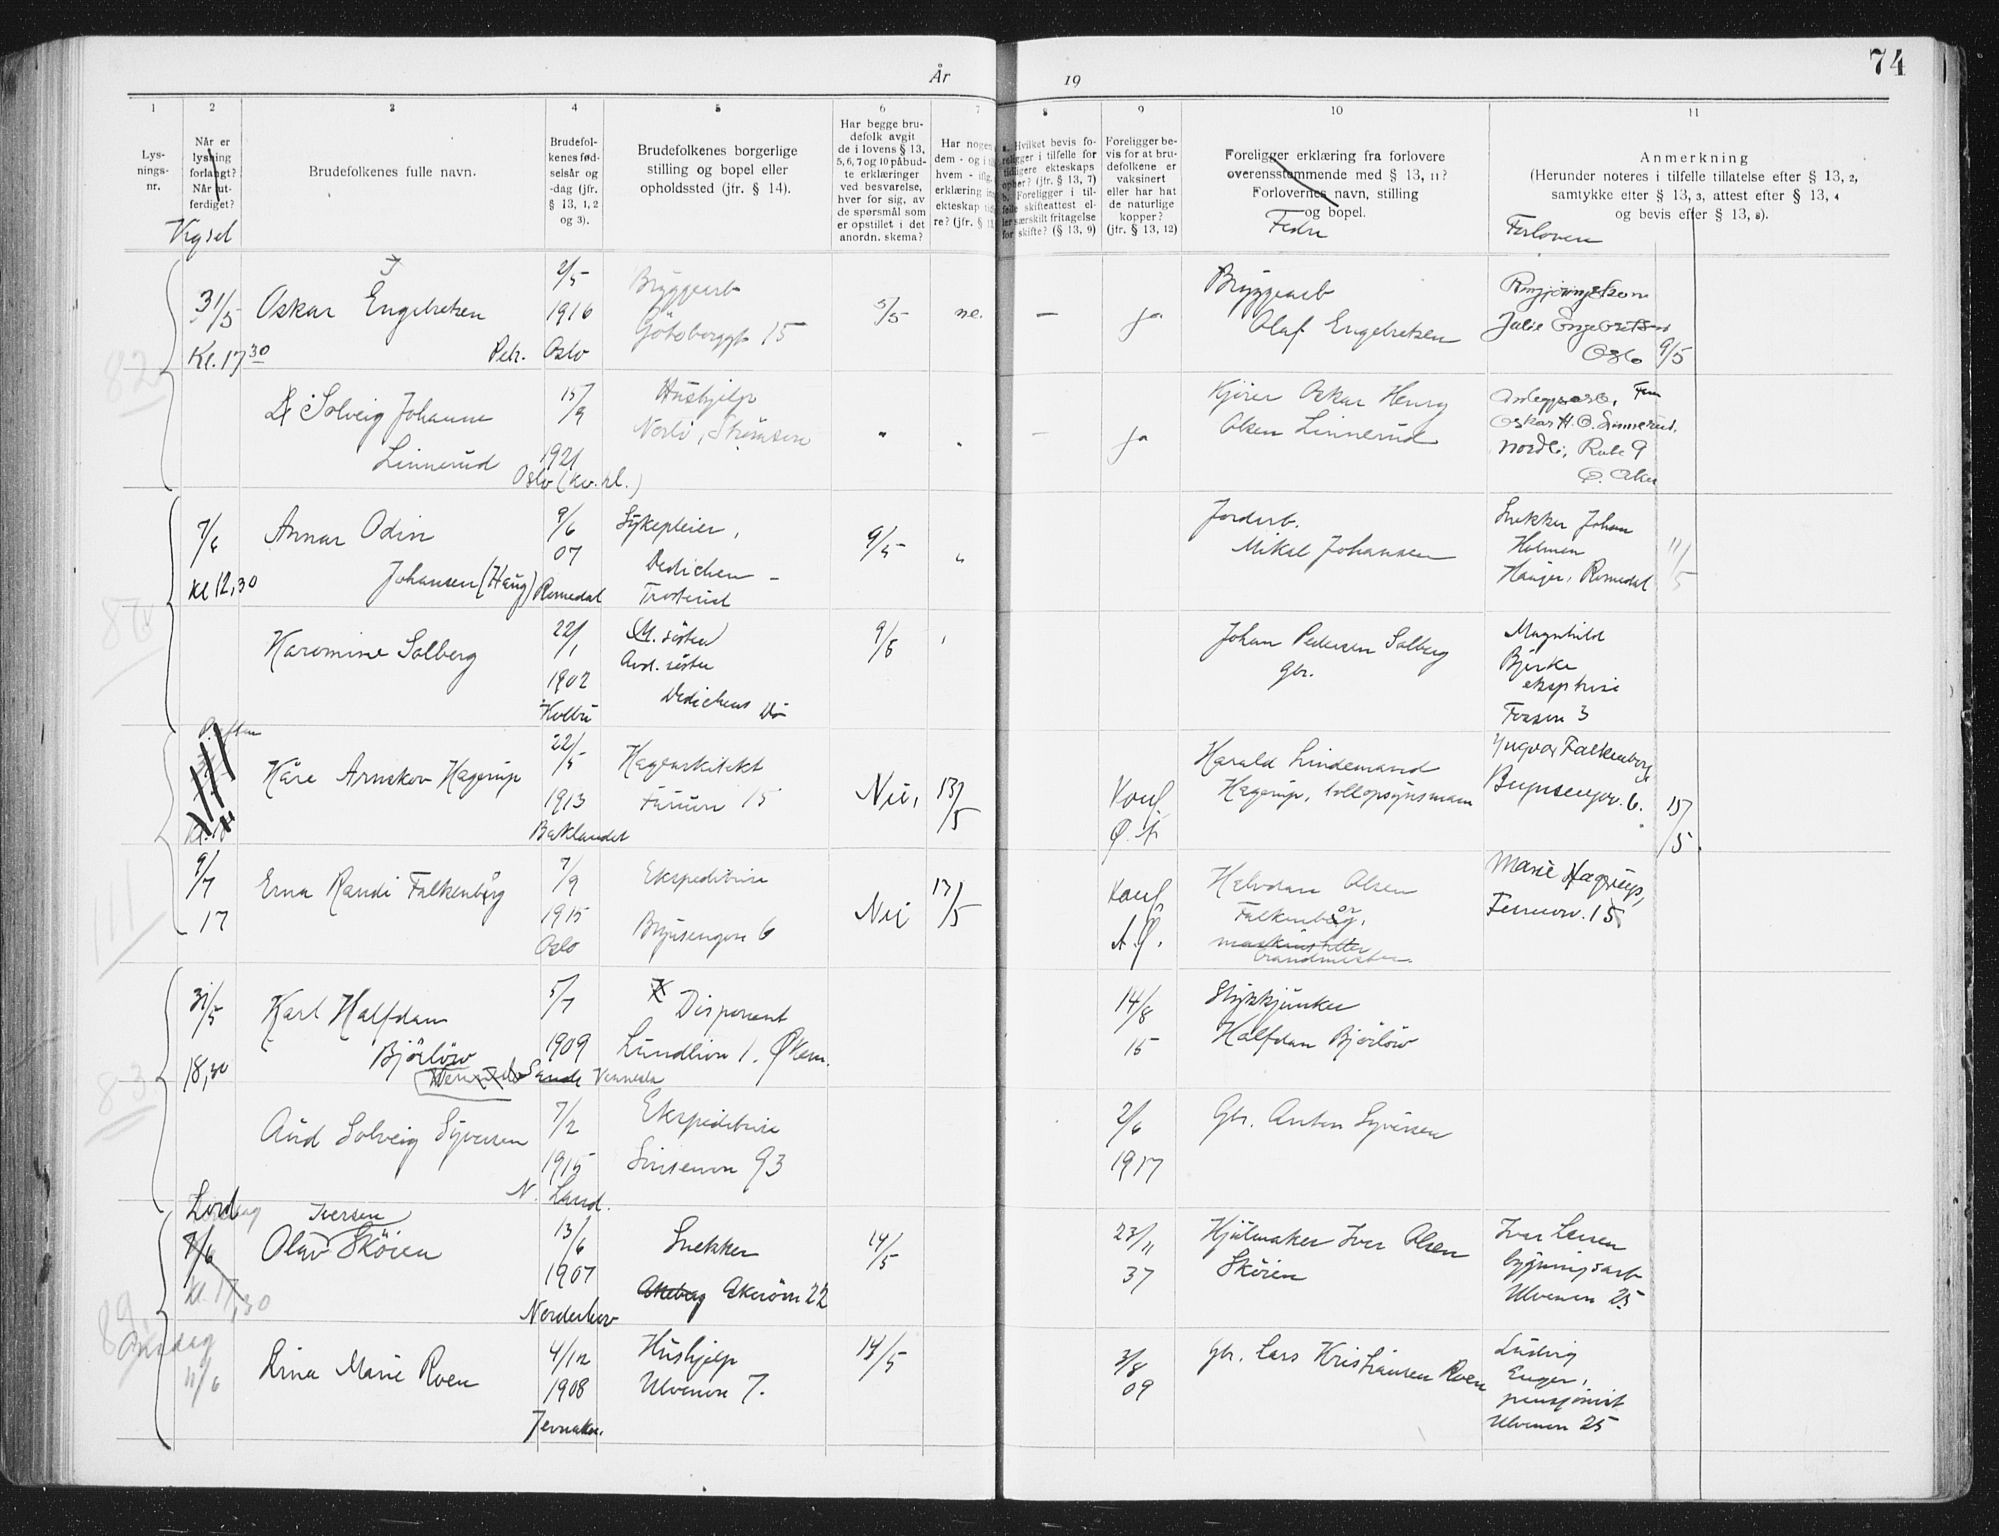 74
År
19
1
2
3
4
5
6
7
8
9
10
11
Lys-
nings-
nr.
Når er
lysning
forlangt?
Når ut-
ferdiget?
Brudefolkenes fulle navn.
Brudefol-
kenes fød-
selsår og
-dag (jfr.
§ 13, 1, 2
og 3).
Brudefolkenes borgerlige
stilling og bopel eller
opholdssted (jfr. § 14).
Har begge bru-
defolk avgit
de i lovens § 13,
5, 6, 7 og 10 påbud-
te erklæringer
ved besvarelse,
hver for sig, av
de spørsmål som
er opstillet i det
anordn. skema?
Har nogen
dem - og i
hvem -
erklæring
ekteskap
re? (jfr. §
a. Hvilket bevis fo-
religger i tilfelle for
tidligere ekteskaps
ophør? (jfr. § 13, 7)
b. Foreligger i til-
felle skifteattest el-
ler særskilt fritagelse
for skifte? (§ 13, 9)
Foreligger be-
vis for at bru-
defolkene er
vaksinert
eller har hat
de naturlige
kopper?
(jfr. § 13, 12)
Foreligger erklæring fra forlovere
overensstemmende med § 13, 11?
Forlovernes navn, stilling
og bopel.
Anmerkning
(Herunder noteres i tilfelle tillatelse efter § 13, 2,
samtykke efter § 13, 3, attest efter § 13, 4
og bevis efter § 13, 8).
Vigsel
Fedre
Forlovere
82
31/5
Kl. 17 30
Oskar Engebretsen
2/5
1916
Oslo
Bryggearb
Göteborggt 15
5/5
ne.
—
ja
Bryggearb
Olaf Engebretsen
Rengjøringskone
Julie Engebretsen
Oslo
9/5
Solveig Johanne
Linnerud
15/9
1921
Oslo (kv. kl.)
Hushjelp
"
"
—
ja
Kjører Oskar Henry
Olsen Linnerud
Oskar H. O. Linnerud,
Nordli, Rute 9
Ø. Aker
7/6
Kl 12,30
Arnar Odin
Johansen (Haug)
9/6
07
Romedal
Sykepleier,
Dedichen -
Trosterud
9/5
"
Jordarb.
Mikal Johansen
Snekker Johan
Holmen
Romedal
11/5
Karomine Solberg
22/1
1902
Kolbu
Avd. søster
Dedichens
9/5
Johan Pedersen Solberg
gbr.
Magnhild
Bjerke
Fossen 3
111
Kåre Arnskov Hagerup
22/5
1913
Baklandet
Hagearkitekt
15
Nei,
13/5
Konf.
Harald Lindemand
Hagerup, tollopsynsmann
Yngvar Falkenborg
Brynsengvn. 6.
15/5
9/7
17
Erna Randi Falkenborg
7/9
1915
Oslo
Ekspeditrise
Brynsengvn 6
Nei
13/5
Konf.
Halvdan Olsen
Falkenborg,
brandmester
Marie Hagerup,
15
83
31/5
18,30
Karl Halfdan
Bjørløw
5/7
1909
Vennesla
Disponent
14/8
15
Stykkjunker
Halfdan Bjørløw
Aud Solveig Syversen
7/2
1915
N. Land.
Ekspeditrise
Sinsenvn 93
2/6
1917
Gbr. Anton Syversen
89
Lørd
7/6
Kl. 17,30
Iversen
Olav Skøien
13/6
1907
Norderhov
Snekker
22
14/5
23/11
37
Hjulmaker Iver Olsen
Skøien
Iver Larsen
bygningsarb
Ulvenvn 25
Onsdag
11/6
Lina Marie Roen
4/12
1908
Jevnaker.
Hushjelp
Ulvenvn 7.
14/5
3/8
09
Gbr. Lars Kristiansen Roen
Ludvig
Enger,
pensjonist
Ulvenvn 25